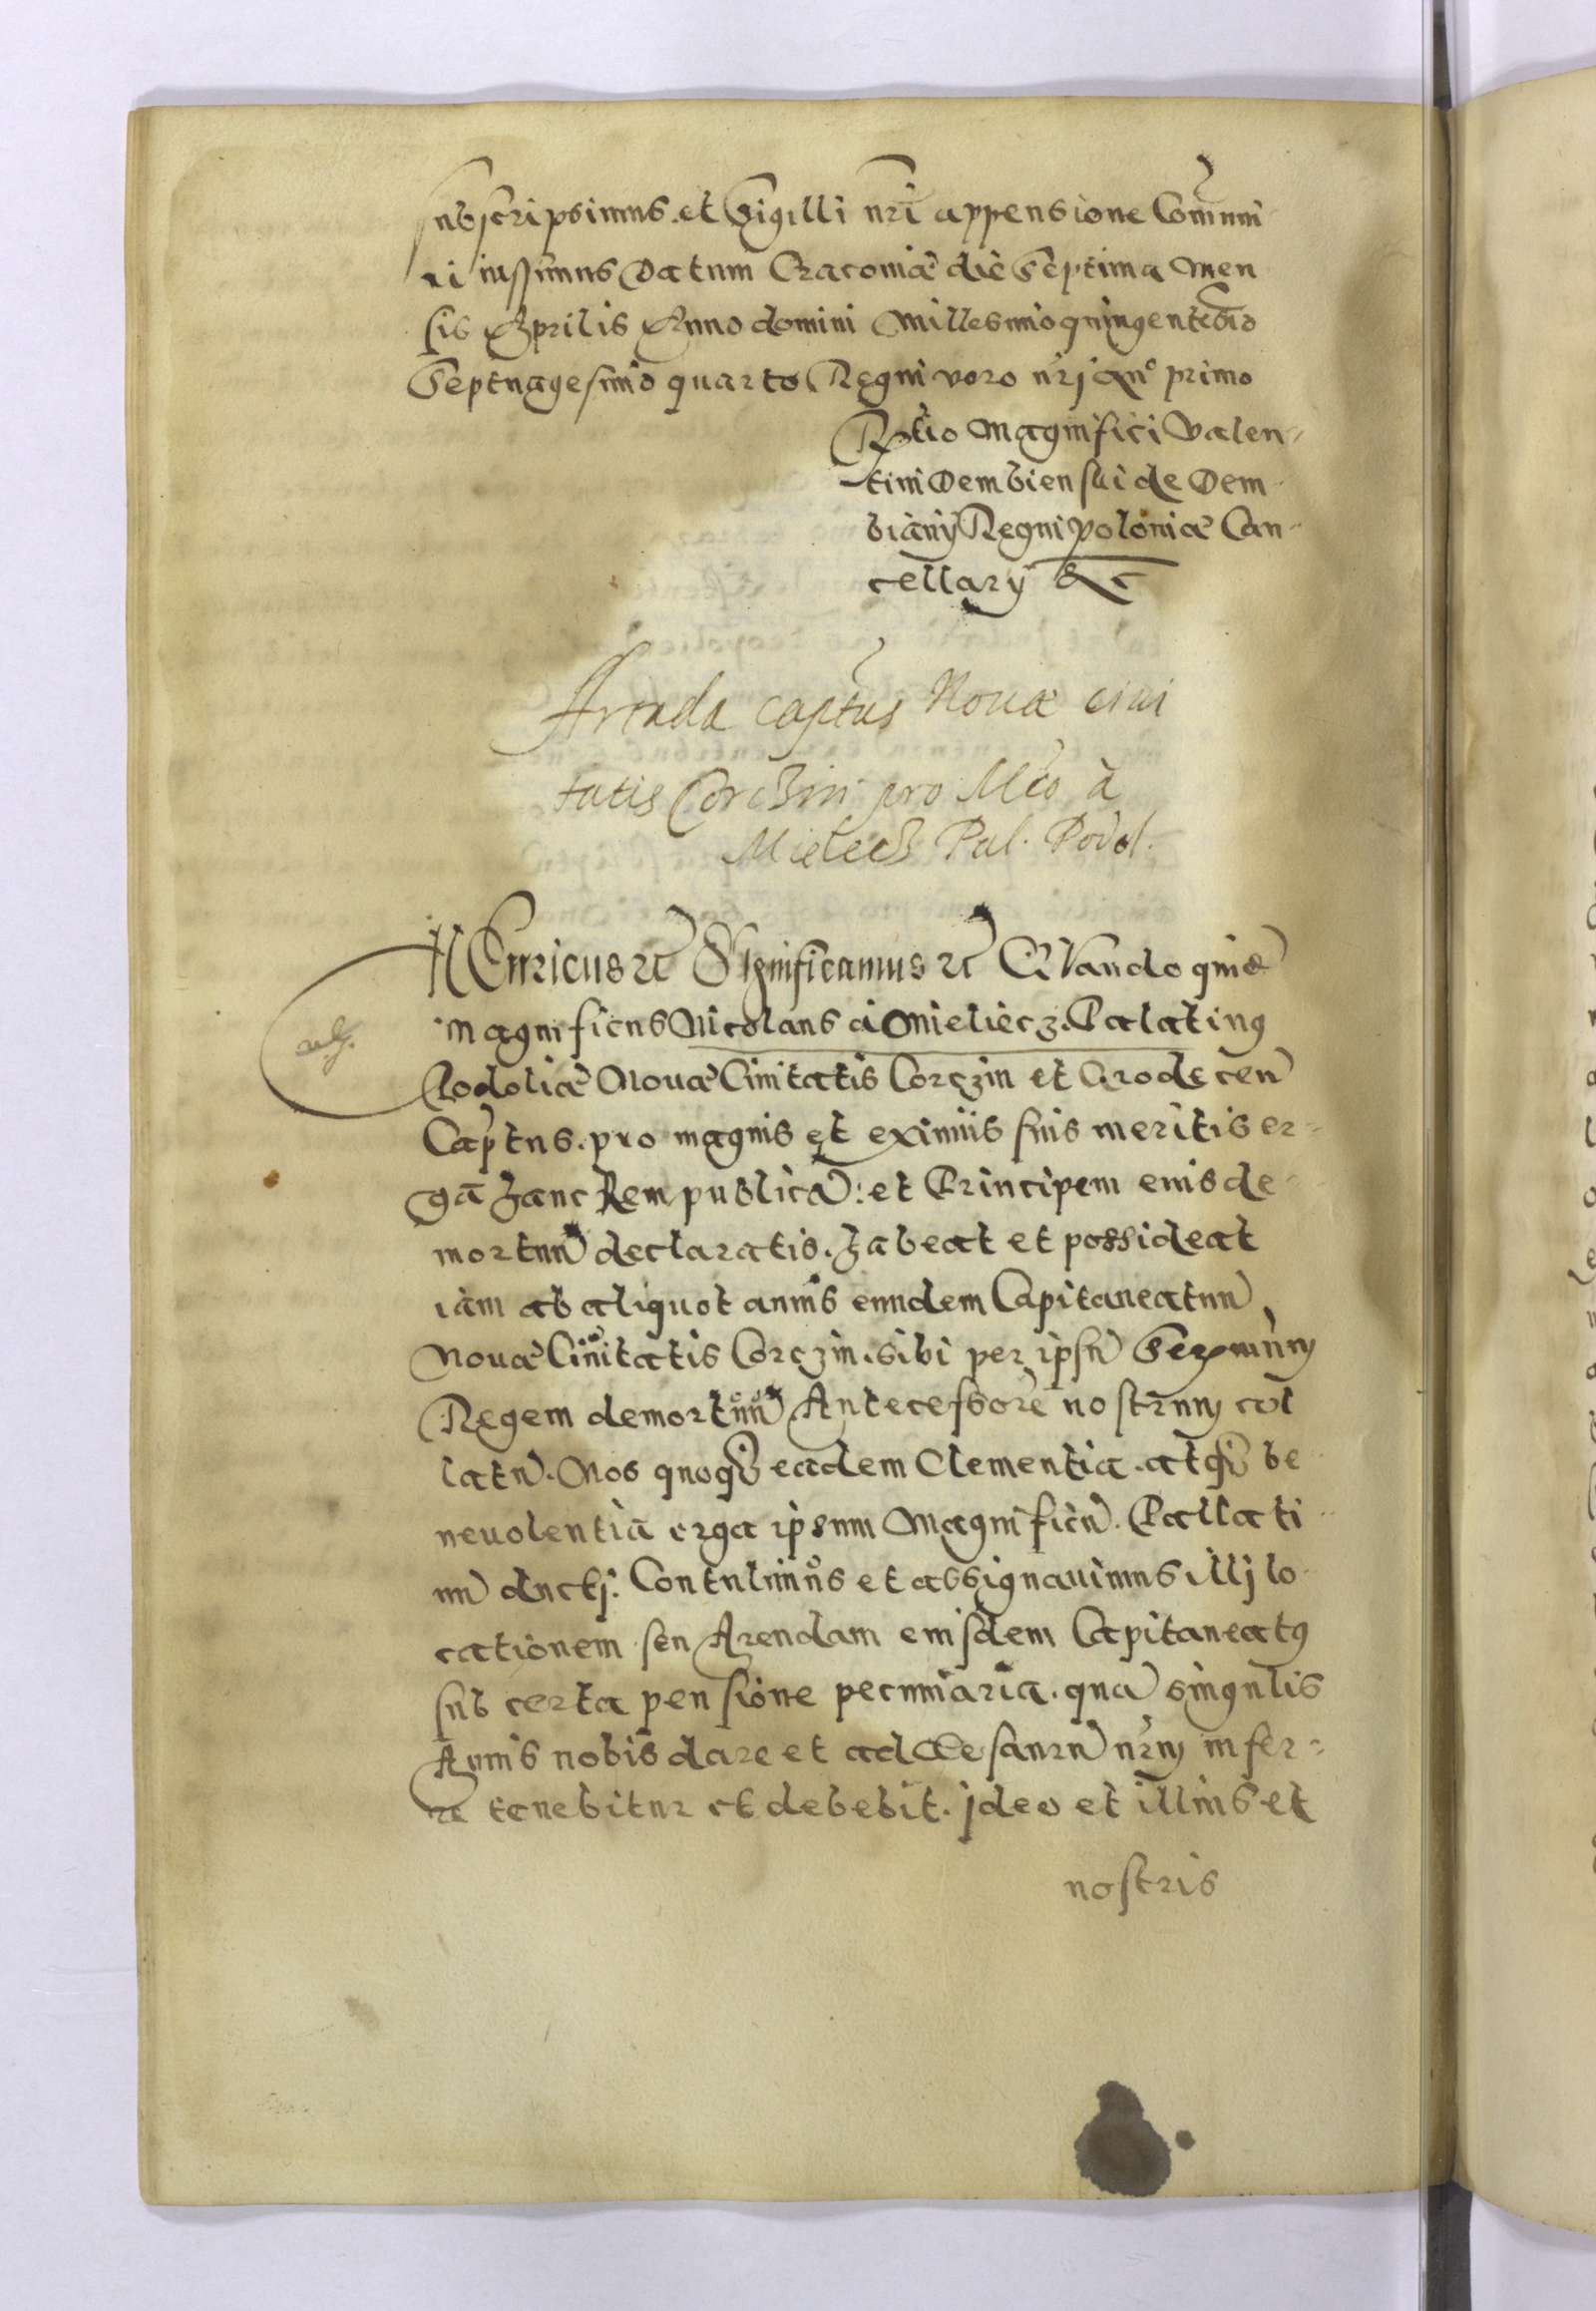 subscripsimus. et Sigilli nri appensione Comuni
ri iussimus Datum Cracouiæ die Septima Men
sis Aprilis Anno domini Millesimo quingentesimo
Septuagesimo quarto Regni vero nrj Anº primo
Rtio Magnifici Valen-
tini Dembienski de Dem-
biany Regni Poloniæ Can-
cellary &c
Arenda captus Nouæ ciui
tatis Corczin pro Mco à
Mielecz Pal. Podol.
HEnricus etc Significamus etc QVando quidẽ
Magnificus Nicolaus a Mieliecz. Palatinus
Podoliæ Nouæ Ciuitatis Corczin et Grodecen
Captus. pro magnis et eximiis suis meritis er-
ga hanc Rempublicã: et Principem eius de-
mortuũ declaratis. habeat et possideat
iam ab aliquot annis eundem Capitaneatum
Nouæ Ciuitatis Corczin. sibi per ipsũ Sermũm
Regem demortuũ Antecessorẽ nostrum col
latũ. Nos quoque eadem Clementia. atque be
neuolentia erga ipsum Magnificũ. Pallati-
nũ ductj. Contulimus et assignauimus illj lo-
cationem seu Arendam eiusdem Capitaneatus
sub certa pensione pecuniaria. quã singulis
Annis nobis dare et ad Thesaurũ nrum infer-
re tenebitur et debebit. jdeo et illius et
nostris